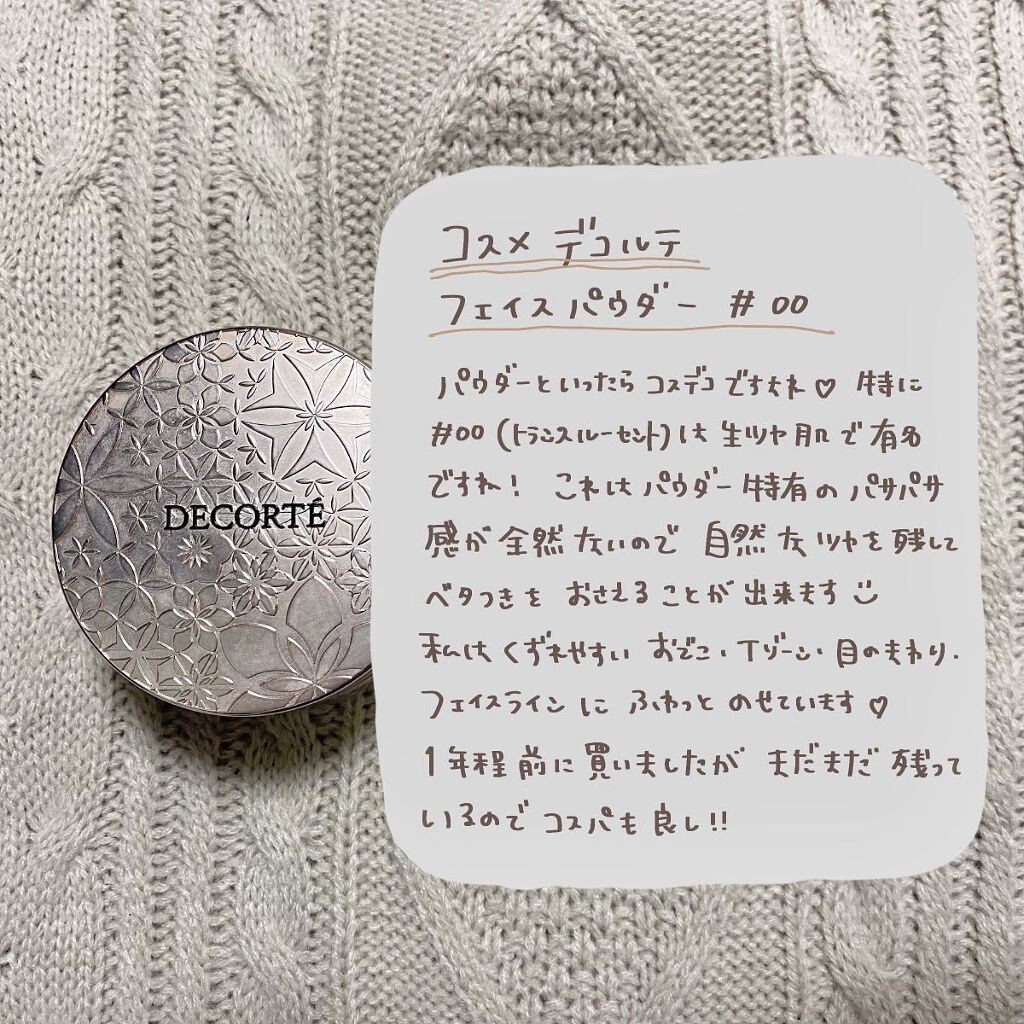 DECORTÉ
コスメ デコルテ
フェイスパウダー #00
パウダーといったらコスデコですよね♡ 特に
#00(トランスルーセント)は生ツヤ肌で有名
ですね! これはパウダー特有のパサパサ
感が全然ないので 自然なツヤを残して
ベタつきを おさえることが出来ます☺
私はくずれやすい おでこ・Tゾーン・目のまわり・
フェイスラインに ふわっとのせています♡
1年程前に買いましたが まだまだ残って
いるのでコスパも良し!!